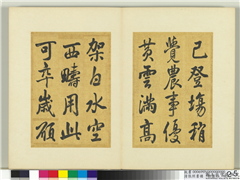 已登場稍
覺農事優
黃雲滿高
架白水空
西疇用此
可卒歲願